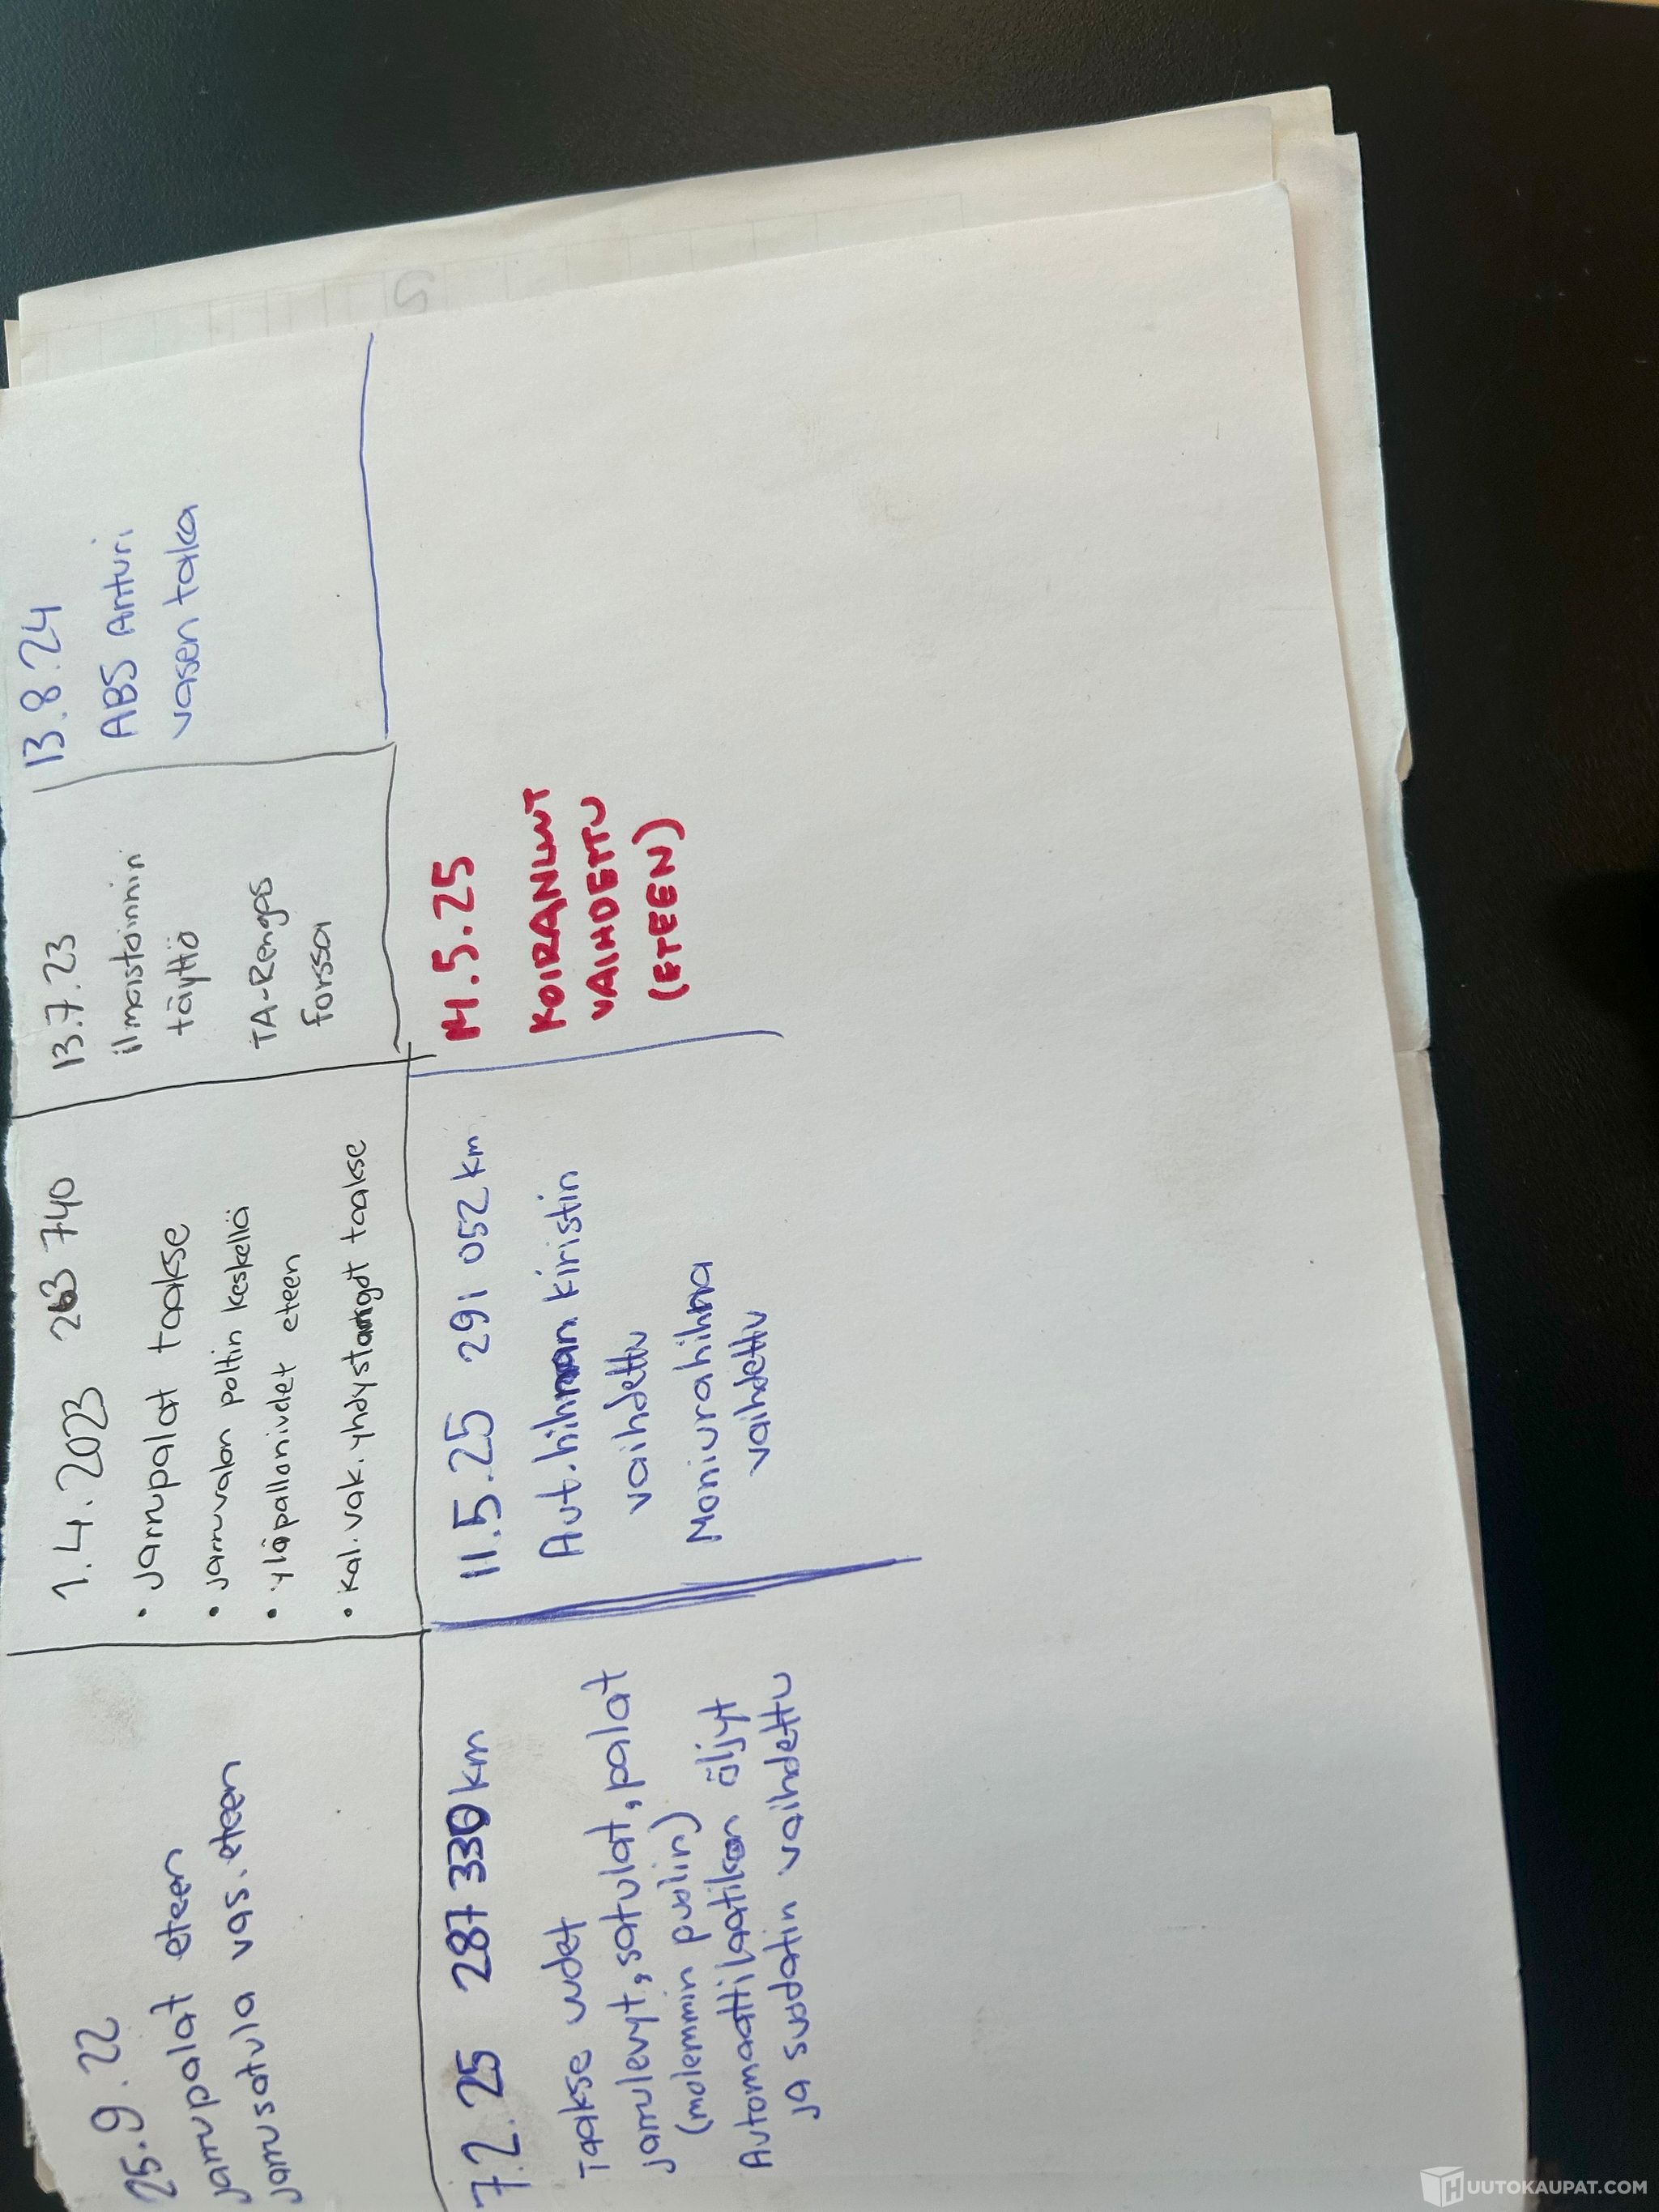 25.9.22
Jarrupalat eteen
jarrusatula vas. eteen
1.4.2023 263 740
• Jarrupalat taakse
• jarruvalon poltin keskellä
• yläpallonivelet eteen
• Kal. vak. yhdystangot taakse
13.7.23
ilmastoinnin
täyttö
TA-Rengas
Forssa
13.8.24
ABS Anturi
vasen taka
7.2.25 287 330km
Taakse uudet
jarrulevyt, satulat, palat
(molemmin puolin)
Automaattilaatikon öljyt
ja suodatin vaihdettu
11.5.25 291 052 km
Aut.hihnan kiristin
vaihdettu
Moniurahihna
vaihdettu
14.5.25
KOIRANLUUT
VAIHDETTU
(ETEEN)
HUUTOKAUPAT.COM